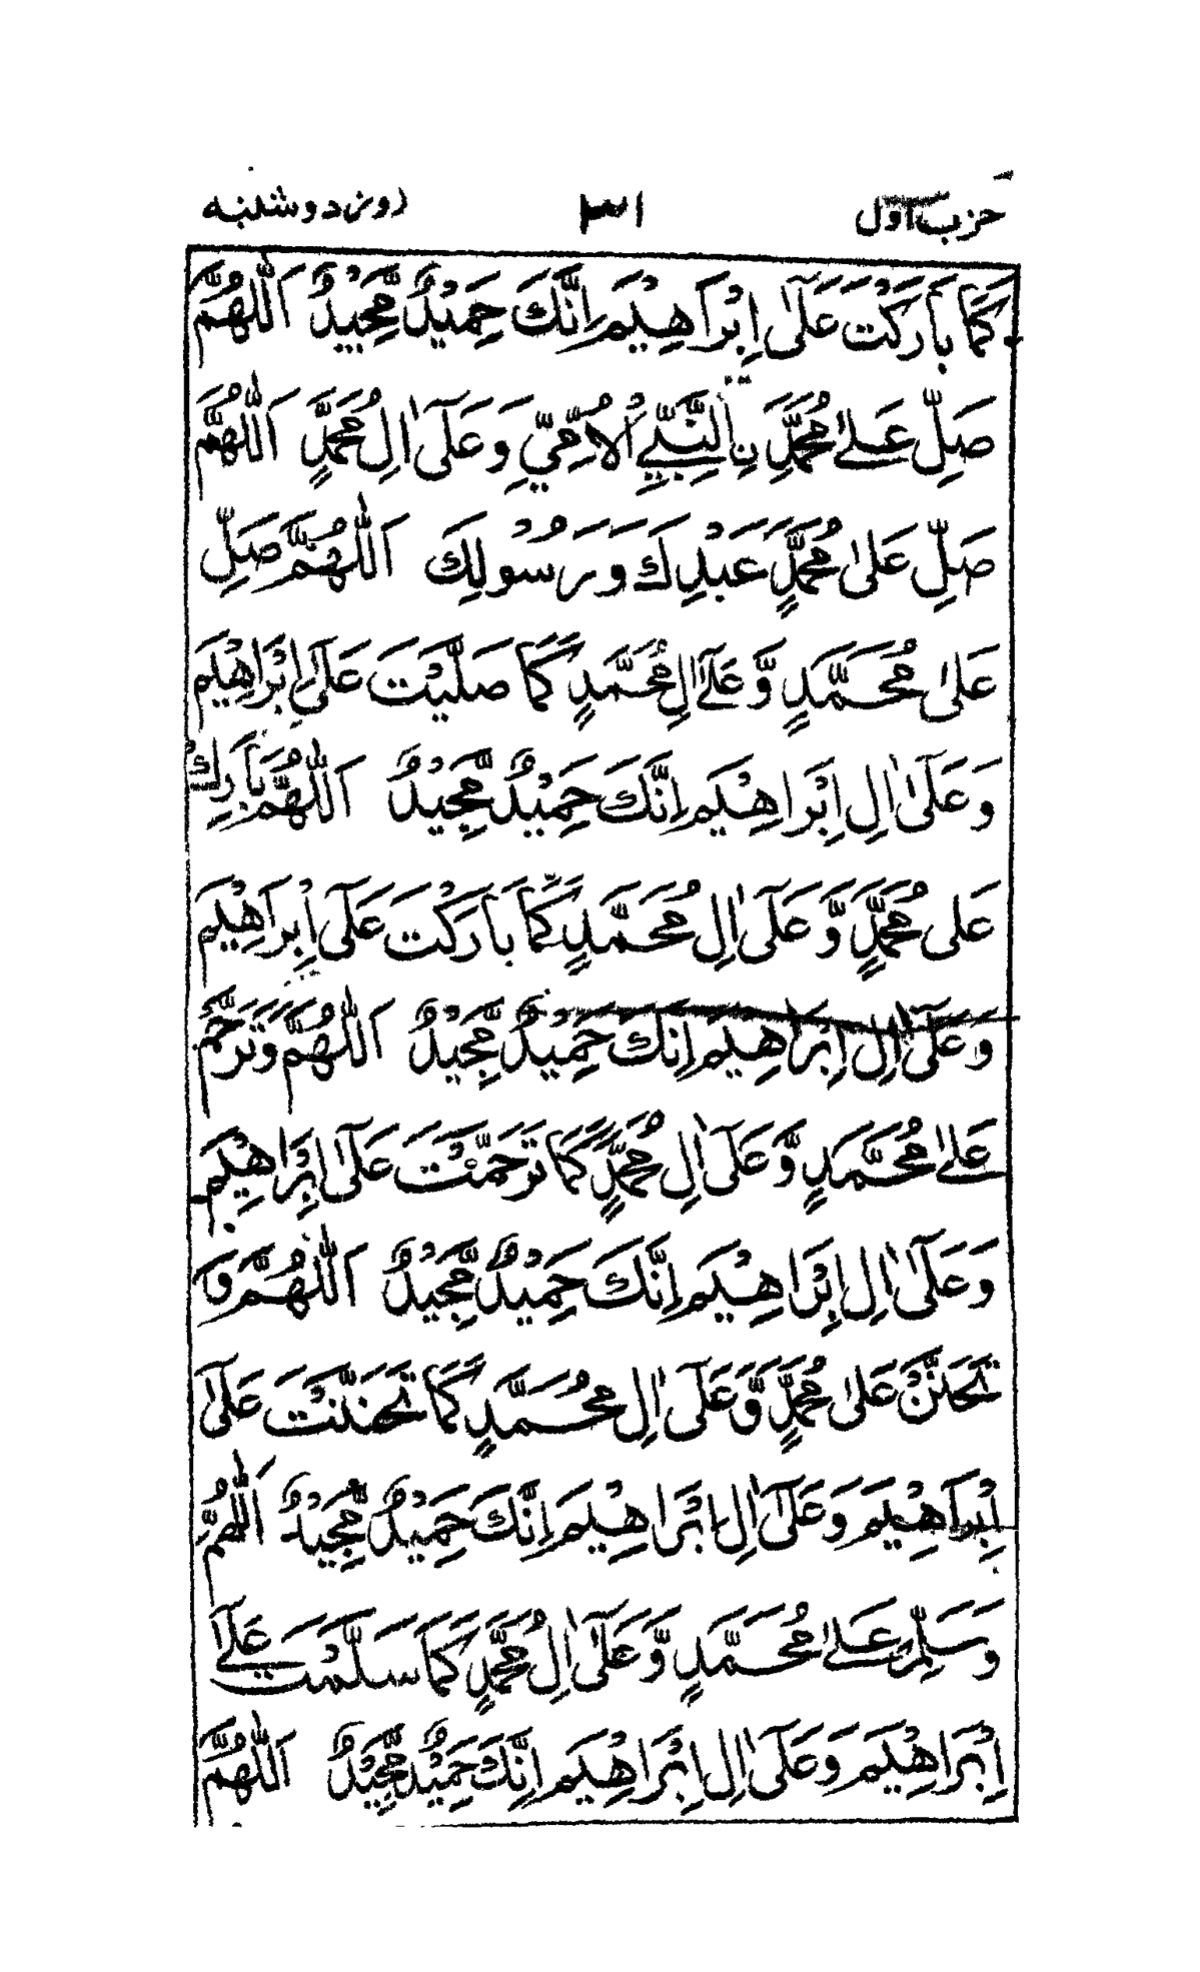 حزب اول ۳۱ روز دوشنبه
كَمَا بَارَكْتَ عَلٰٓى اِبْرَاهِيْمَ اِنَّكَ حَمِيْدٌ مَّجِيْدٌ اَللّٰهُمَّ
صَلِّ عَلٰى مُحَمَّدِ نِالنَّبِيِّ الْاُمِّيِّ وَعَلٰٓى اٰلِ مُحَمَّدٍ اَللّٰهُمَّ
صَلِّ عَلٰى مُحَمَّدٍ عَبْدِكَ وَرَسُوْلِكَ اَللّٰهُمَّ صَلِّ
عَلٰى مُحَمَّدٍ وَّعَلٰٓى اٰلِ مُحَمَّدٍ كَمَا صَلَّيْتَ عَلٰٓى اِبْرَاهِيْمَ
وَعَلٰٓى اٰلِ اِبْرَاهِيْمَ اِنَّكَ حَمِيْدٌ مَّجِيْدٌ اَللّٰهُمَّ بَارِكْ
عَلٰى مُحَمَّدٍ وَّعَلٰٓى اٰلِ مُحَمَّدٍ كَمَا بَارَكْتَ عَلٰٓى اِبْرَاهِيْمَ
وَعَلٰٓى اٰلِ اِبْرَاهِيْمَ اِنَّكَ حَمِيْدٌ مَّجِيْدٌ اَللّٰهُمَّ وَتَرَحَّمْ
عَلٰى مُحَمَّدٍ وَّعَلٰٓى اٰلِ مُحَمَّدٍ كَمَا تَرَحَّمْتَ عَلٰٓى اِبْرَاهِيْمَ
وَعَلٰٓى اٰلِ اِبْرَاهِيْمَ اِنَّكَ حَمِيْدٌ مَّجِيْدٌ اَللّٰهُمَّ وَ
تَحَنَّنْ عَلٰى مُحَمَّدٍ وَّعَلٰٓى اٰلِ مُحَمَّدٍ كَمَا تَحَنَّنْتَ عَلٰٓى
اِبْرَاهِيْمَ وَعَلٰٓى اٰلِ اِبْرَاهِيْمَ اِنَّكَ حَمِيْدٌ مَّجِيْدٌ اَللّٰهُمَّ
وَسَلِّمْ عَلٰى مُحَمَّدٍ وَّعَلٰٓى اٰلِ مُحَمَّدٍ كَمَا سَلَّمْتَ عَلٰٓى
اِبْرَاهِيْمَ وَعَلٰٓى اٰلِ اِبْرَاهِيْمَ اِنَّكَ حَمِيْدٌ مَّجِيْدٌ اَللّٰهُمَّ